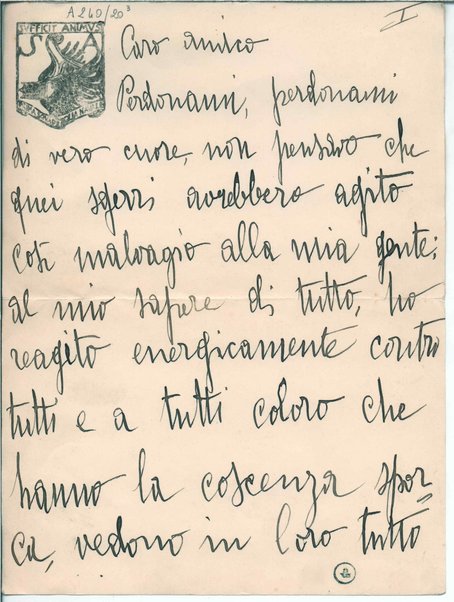 A 249/20³
I
SVFFICIT ANIMVS
S A
Caro Amico
Perdonami, perdonami
di vero cuore, non pensavo che
quei sgerri avrebbero agito
così malvagio alla mia gente;
al mio sapere di tutto, ho
reagito energicamente contro
tutti e a tutti coloro che
hanno la coscenza spor-
ca, vedono in loro tutto